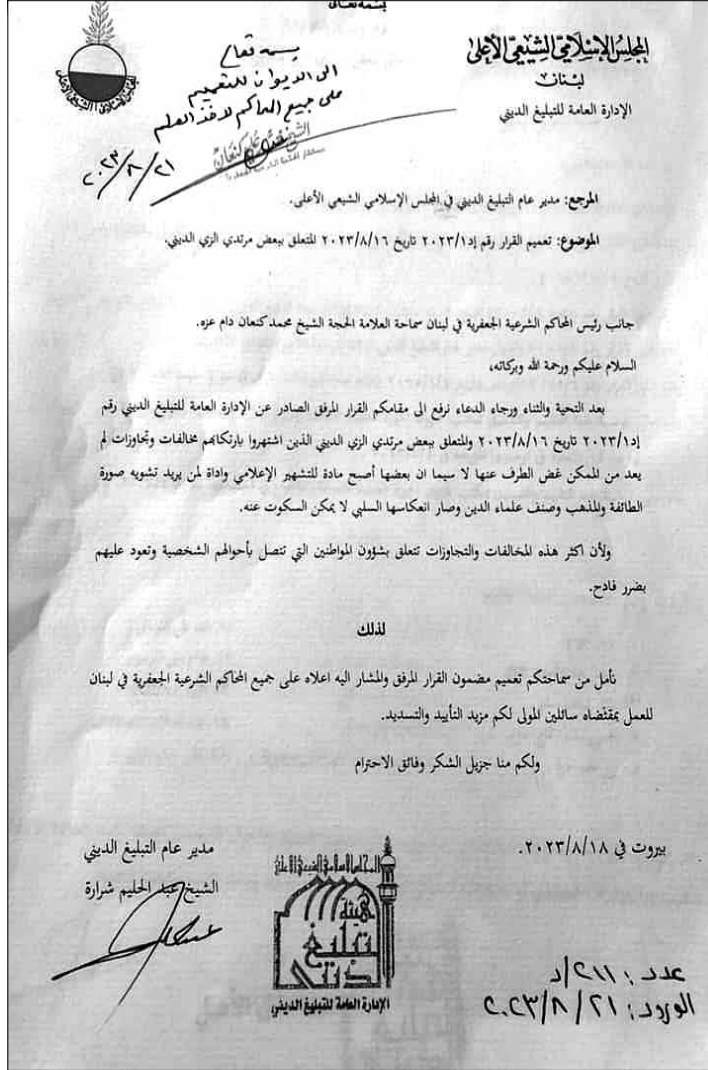 بسمه تعالى
المجلس الإسلامي الشيعي الأعلى
لبنان
الإدارة العامة للتبليغ الديني
المجلس الإسلامي الشيعي الأعلى
بسمه تعالى
الى الديوان للتعميم
على جميع المحاكم لاخذ العلم
الشيخ محمد كنعان
٢٠٢٣/٨/٢١
المرجع: مدير عام التبليغ الديني في المجلس الإسلامي الشيعي الأعلى.
الموضوع: تعميم القرار رقم إد/٢٠٢٣/١ تاريخ ٢٠٢٣/٨/١٦ المتعلق ببعض مرتدي الزي الديني.
جانب رئيس المحاكم الشرعية الجعفرية في لبنان سماحة العلامة الحجة الشيخ محمد كنعان دام عزه.
السلام عليكم ورحمة الله وبركاته،
بعد التحية والثناء ورجاء الدعاء نرفع الى مقامكم القرار المرفق الصادر عن الإدارة العامة للتبليغ الديني رقم
إد/٢٠٢٣/١ تاريخ ٢٠٢٣/٨/١٦ والمتعلق ببعض مرتدي الزي الديني الذين اشتهروا بارتكابهم مخالفات وتجاوزات لم
يعد من الممكن غض الطرف عنها لا سيما ان بعضها أصبح مادة للتشهير الإعلامي واداة لمن يريد تشويه صورة
الطائفة والمذهب وصنف علماء الدين وصار انعكاسها السلبي لا يمكن السكوت عنه.
ولأن اكثر هذه المخالفات والتجاوزات تتعلق بشؤون المواطنين التي تتصل بأحوالهم الشخصية وتعود عليهم
بضرر فادح.
لذلك
نأمل من سماحتكم تعميم مضمون القرار المرفق والمشار اليه اعلاه على جميع المحاكم الشرعية الجعفرية في لبنان
للعمل بمقتضاه سائلين المولى لكم مزيد التأييد والتسديد.
ولكم منا جزيل الشكر وفائق الاحترام
بيروت في ٢٠٢٣/٨/١٨.
مدير عام التبليغ الديني
الشيخ عبد الحليم شرارة
المجلس الاسلامي الشيعي الأعلى
هيئة
تبليغ
الديني
الإدارة العامة للتبليغ الديني
عدد: ٢١١/د
الورود: ٢٠٢٣/٨/٢١